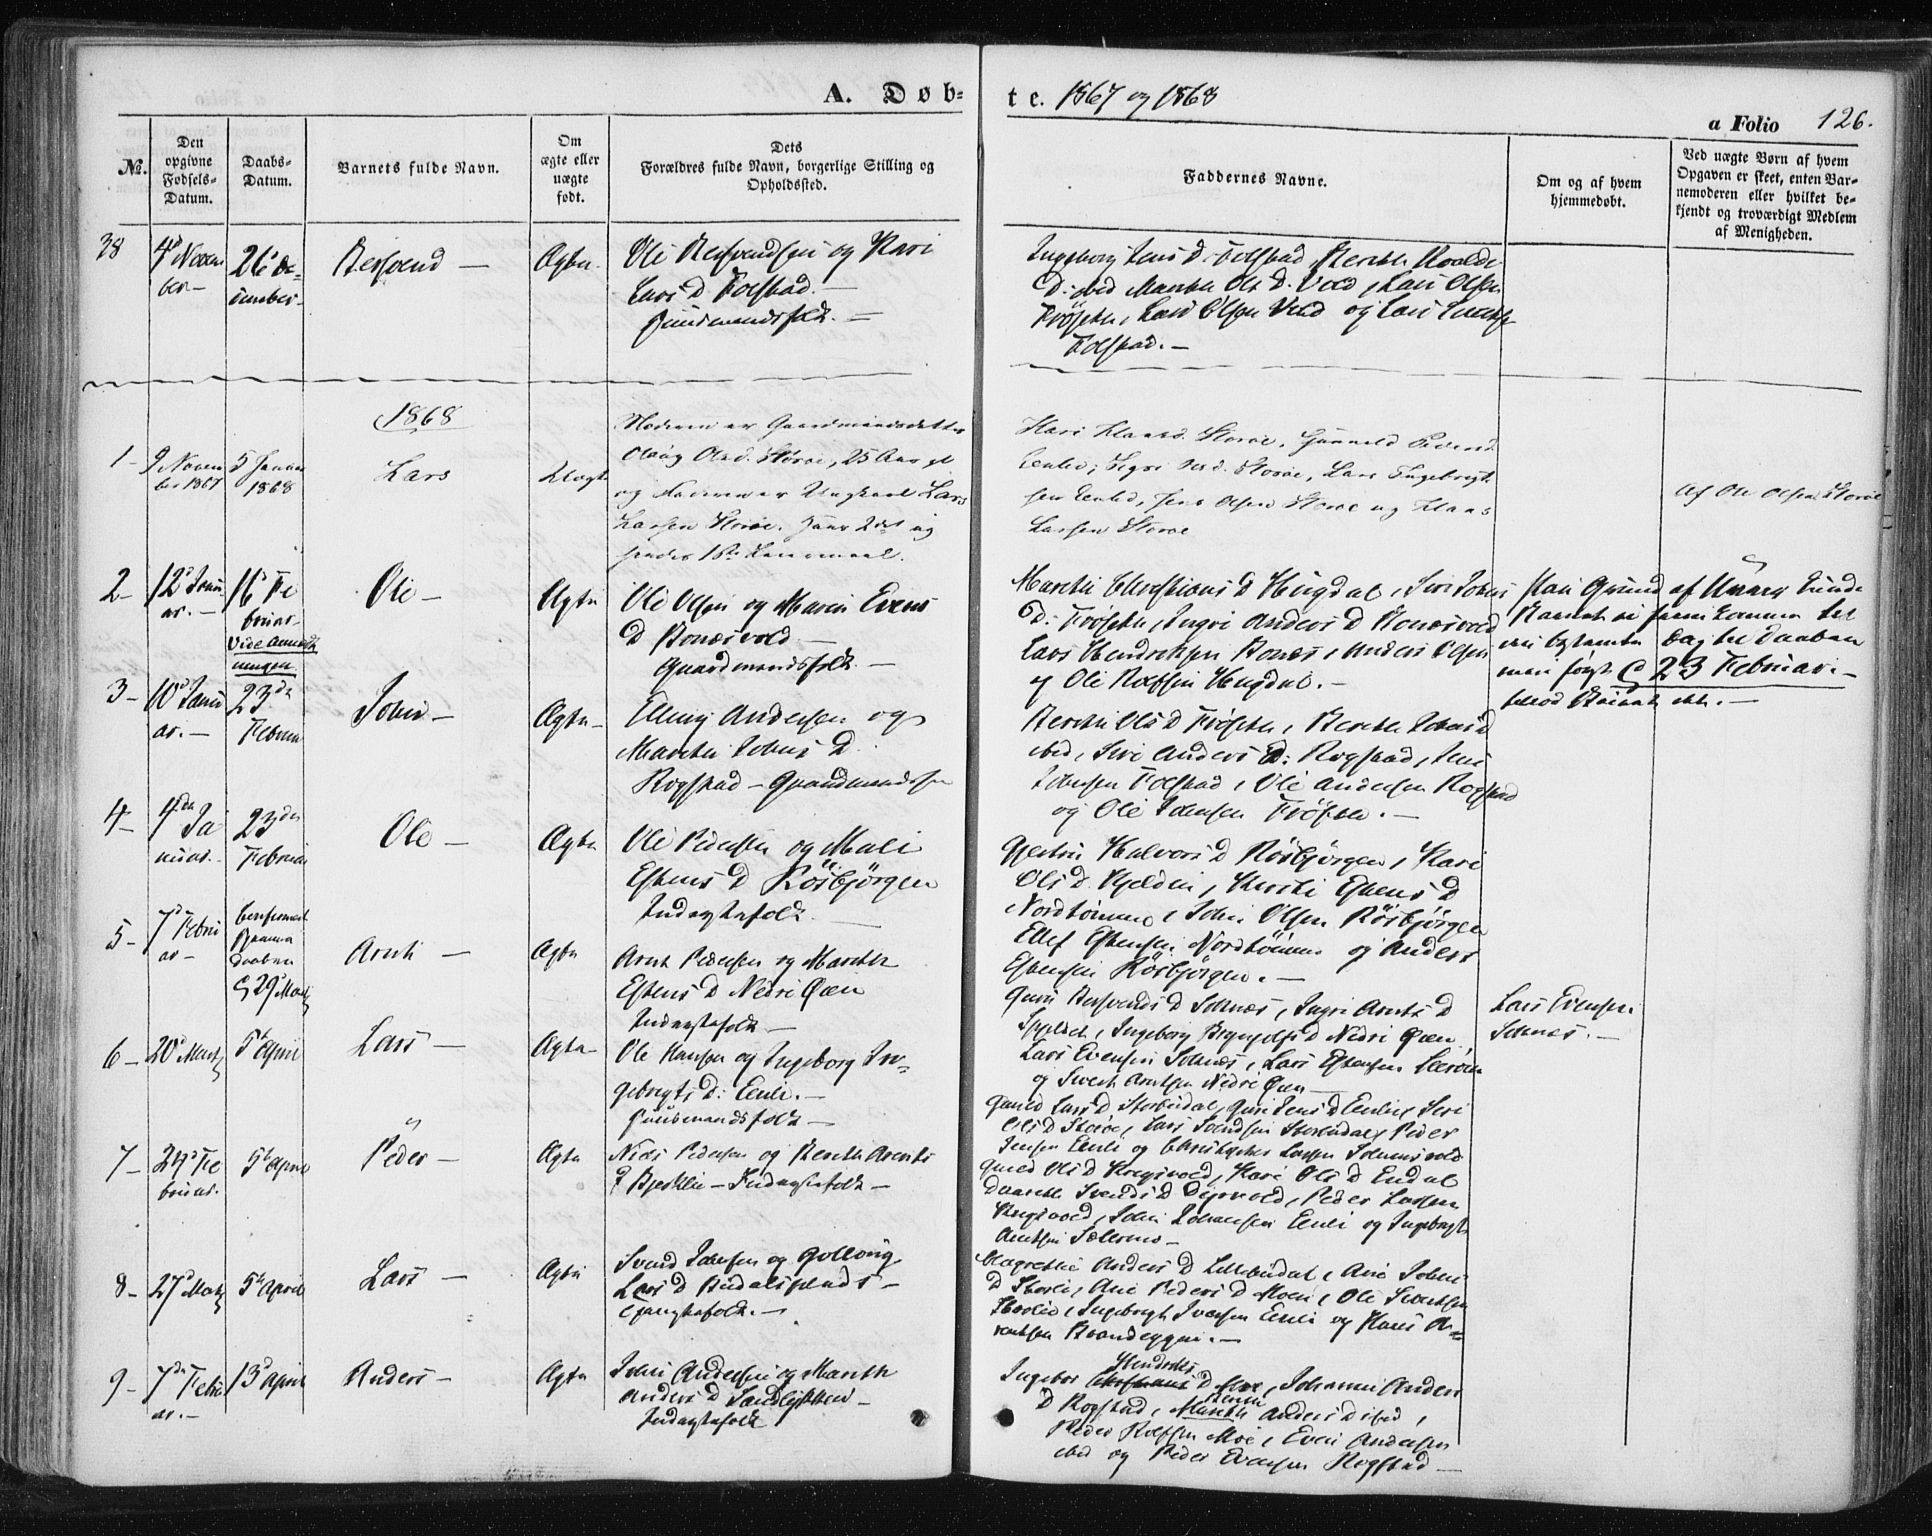 A. Døb-
te. 1867 og 1868
a Folio 126.
No.
Den
opgivne
Fødsels-
Datum.
Daabs-
Datum.
Barnets fulde Navn.
Om
ægte eller
uægte
født.
Dets
Forældres fulde Navn, borgerlige Stilling og
Opholdssted.
Faddernes Navne.
Om og af hvem
hjemmedøbt.
Ved uægte Børn af hvem
Opgaven er skeet, enten Bar-
nemoderen eller hvilket be-
kjendt og troværdigt Medlem
af Menigheden.
38
4d Novem
ber-
26d De-
cember-
Bersvend -
Ægte.
Ole Bersvendsen og Kari
Lars D Folstad.
Huusmandsfolk. -
Ingeborg Jens D. Folstad, Berethe
D: ibid Marethe Ols D. Vold, Lars Olsen
Frösethe, Lars Olsen Vold og Lars
Folstad. -
1868
1-
9 Novem
ber 1867
5 Januar
1868
Lars
Uægte
Moderen er Gaardmandsdatter
Olaug Olsd. Storøe, 25 Aar gl
og Faderen er Ungkarl Lars
Larsen Storøe. Hans 2det og
hendes 1ste Leiermaal.
Kari Klausd. Storøe, Gunnild
Eenlid, Sigri Storøe, Lars Ingebrigt
sen Eenlid, Jens Olsen Storøe og Klaus
Larsen Storøe
Af Ole Olsen Storøe
2-
12d Janu
ar. -
16d Fe
bruar-
Vide Anmærk
ningen
Ole -
Ægte
Ole Olsen og Maren Evens
D Bonæsvold -
Gaardmandsfolk -
Marethe Christians D Hugdal, Siri Johns
D: Frösethe, Ingri Anders D Bonæsvold
Lars Hendriksen Bonæs, Anders Olsen
og Ole Rolfsen Hugdal. -
paa Grund af Kunde
Barnet ei frem komme til
den bestemte Dag til Daaben
men først d 23 Februar. -
3-
10d Janu
ar. -
23de
Februar
John -
Ægte -
Elling Andersen og
Marethe Johns D.
Rogstad - Gaardmandsfolk
Berethe Ols D Frösethe, Berethe Johns D
ibid, Siri Anders D: Rogstad, Jens
Johnsen Folstad, Ole Andersen Rogstad
og Ole Johnsen Frösethe. -
4-
4de Ja
nuar. -
23de
Februar
Ole -
Ægte
Ole Pedersen og Mali
Estens D Rösbjörgen
Inderstefolk -
Gjertru Halvors D Rösbjörgen, Kari
Ols D. Kjelden, Estens D
Nordtömme, John Olsen Rösbjörgen
Ellef Estensen Nordtömme og Anders
Estensen Rösbjörgen. -
5-
7d Febru
ar-
hjemme
daaben
d 29 Martz
Arnt -
Ægte
Arnt Pedersen og Marethe
Estens D Nedre Öien
Inderstefolk -
Guri Bersvends D Solnæs, Ingri Arnts D
Ingeborg Brynjolfs D Nedre Öien
Lars Evensen Solnæs, Lars Estensen
og Sivert Arntsen Nedre Öien
Lars Evensen
Solnæs. -
6-
20d Martz
5te April
Lars -
Ægte -
Ole Hansen og Ingeborg In-
gebrigts D: Eenli. -
Huusmandsfolk -
Gunild Lars D Storbudal, Guri Jens D Eenli, Siri
Ols D Storøe, Lars Svendsen Storbudal, Peder
Jensen Eenli og Christopher Larsen Johnsvold
7-
29d Fe
bruar.
5te April
Peder -
Ægte
Niels Pedersen og Berethe Arnts
D Bjerkli - Inderstefolk -
Gunild Ols D Krogsvold, Kari Ols D Endal
Svends D, Peder Larsen
Krogsvold, John Johansen Eenli og Ingebrigt
Arntsen -
8-
27d Martz
5te April
Lars -
Ægte
Svend Johnsen og Gollaug
Lars D Budalsplads -
Gjæstefolk. -
Magrethe Anders D Lillebudal, Ane Johns
D Storli, Ane Peders D Moen, Ole Sivertsen
Storlie, Ingebrigt Iversen Eenli og Hans Ar-
entsen Brandeggen. -
9-
7de Febru
ar. -
13d April
Anders -
Ægte
John Andersen og Marethe
Anders D Sandløkken -
Inderstefolk
Hendriks
Ingebor D Moe, Johanna Anders
D Rogstad, Marethe Anders D ibid,
Peder Rolfsen Moe, Even Andersen
ibid og Peder Evensen Rogstad -